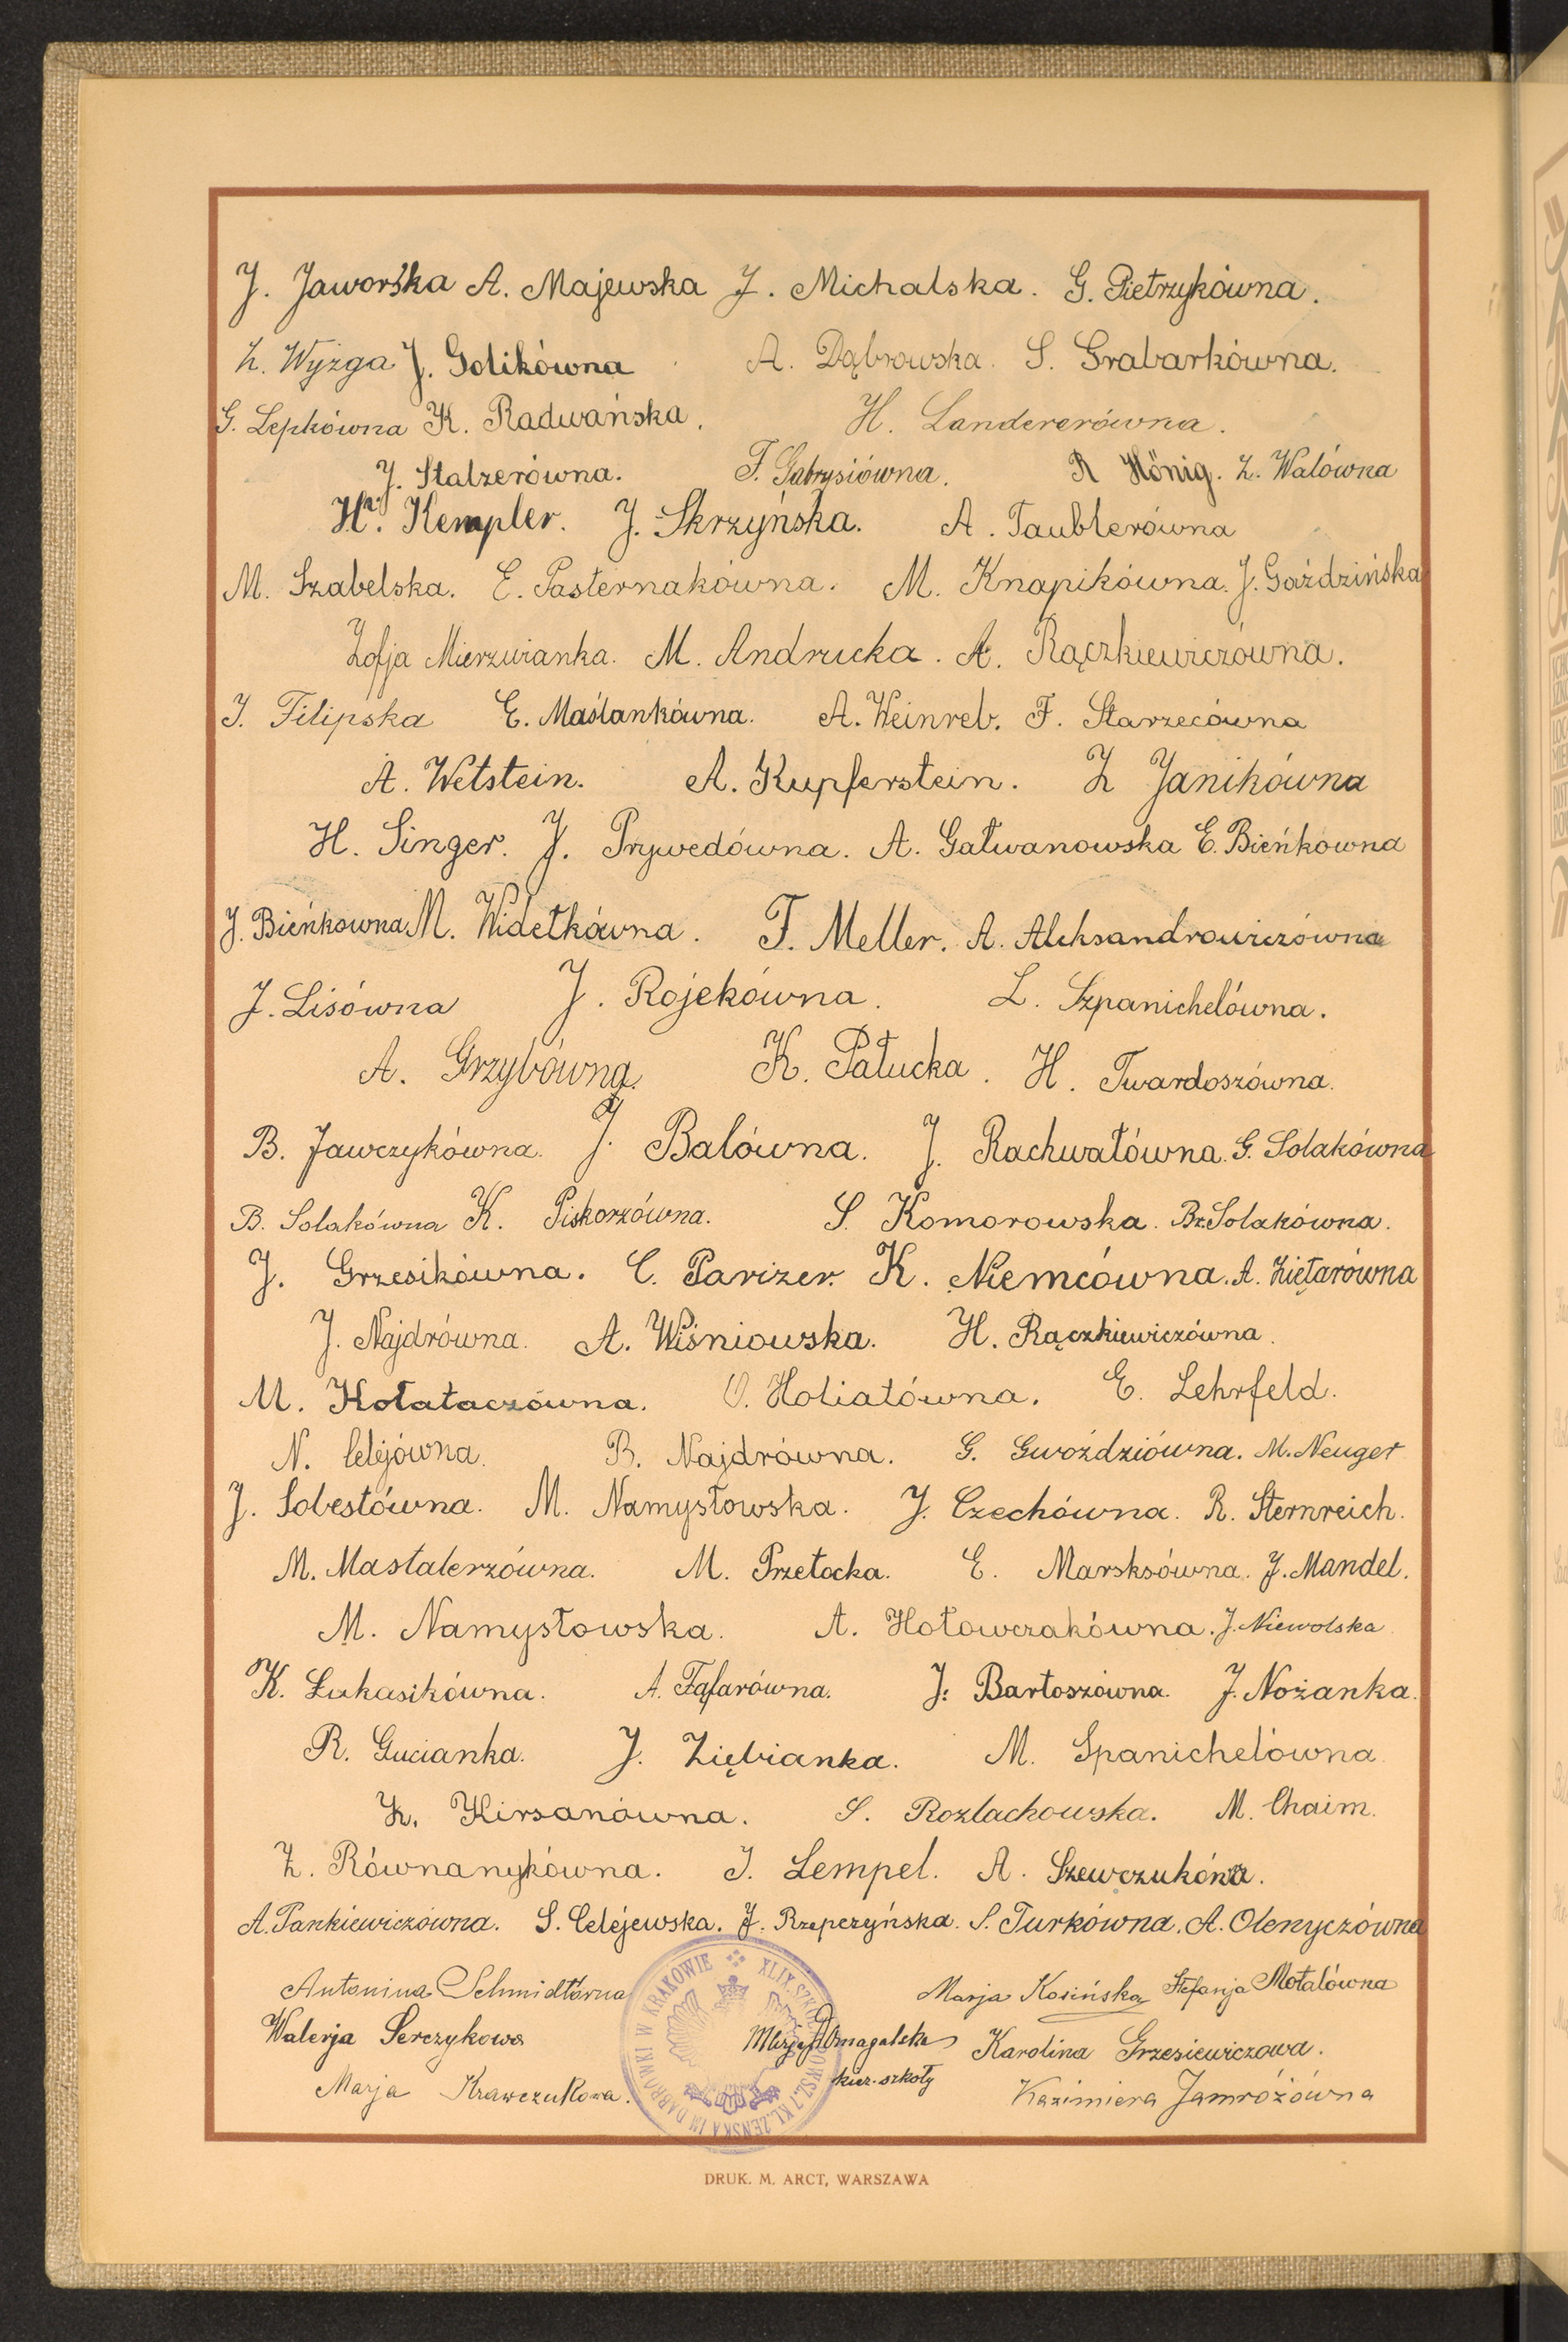 J. Jaworska A. Majewska J. Michalska. G. Pietrzykówna.
Z. Wyżga J. Golikówna A. Dąbrowska. S. Grabarkówna.
G. Lepkówna K. Radwańska. H. Landererówna.
J. Stalzerówna. F. Gabrysiówna. R König. Z. Walówna
Hr. Kempler. J. Skrzyńska. A. Taublerówna
M. Szabelska. E. Pasternakówna. M. Knapikówna. J. Goździńska
Zofja Mierzwianka. M. Andrucka. A. Rączkiewiczówna.
J. Filipska E. Maślankówna. A. Weinreb. F. Starzecówna
A. Wetstein. A. Kupferstein. Z Janikówna
H. Singer. J. Prywedówna. A. Gałwanowska E. Bieńkowna
J. Bieńkowna M. Widełkówna. F. Meller. A. Aleksandrowiczówna
J. Lisówna J. Rojekówna. L. Szpanichelówna.
A. Grzybówna. K. Pałucka. H. Twardoszówna.
B. Jawczykówna. J. Balówna. J. Rachwałówna. G. Solakówna
B. Solakówna K. Piskorzówna. S. Komorowska. Br. Solakówna.
J. Grzesikówna. C. Parizer. K. Niemcówna. A. Ziętarówna
J. Najdrówna. A. Wiśniowska. H. Rączkiewiczówna.
M. Kołataczówna. O. Holiatówna. E. Lehrfeld.
N. Celejówna. B. Najdrówna. G. Gwoździówna. M. Neuger
J. Sobestówna. M. Namysłowska. J. Czechówna. R. Sternreich.
M. Mastalerzówna. M. Przetocka. E. Marsksówna. J. Mandel.
M. Namysłowska. A. Hołowczakówna. J. Niewolska
K. Łukasikówna. A. Fąfarówna. J. Bartoszówna. J. Nożanka.
R. Gucianka. J. Ziębianka. M. Spanichelówna
Z. Kirsanówna. S. Rozlachowska. M. Chaim.
Z. Równanykówna. J. Lempel. A. Szewczukóna.
A. Pankiewiczówna. S. Celejewska. J. Rzepczyńska. S. Turkówna. A. Olenyczówna
Antonina Schmidtówna Marja Kosińska Stefanja Motalówna
Walerja Serczykowa Marja Domagalska Karolina Grzesiewiczowa.
kier. szkoły
Marja Krawczukowa. Kazimiera Jamróżówna
XLIX. SZK. POWSZ. 7 KL. ŻEŃSKA IM DĄBRÓWKI W KRAKOWIE
DRUK. M. ARCT, WARSZAWA